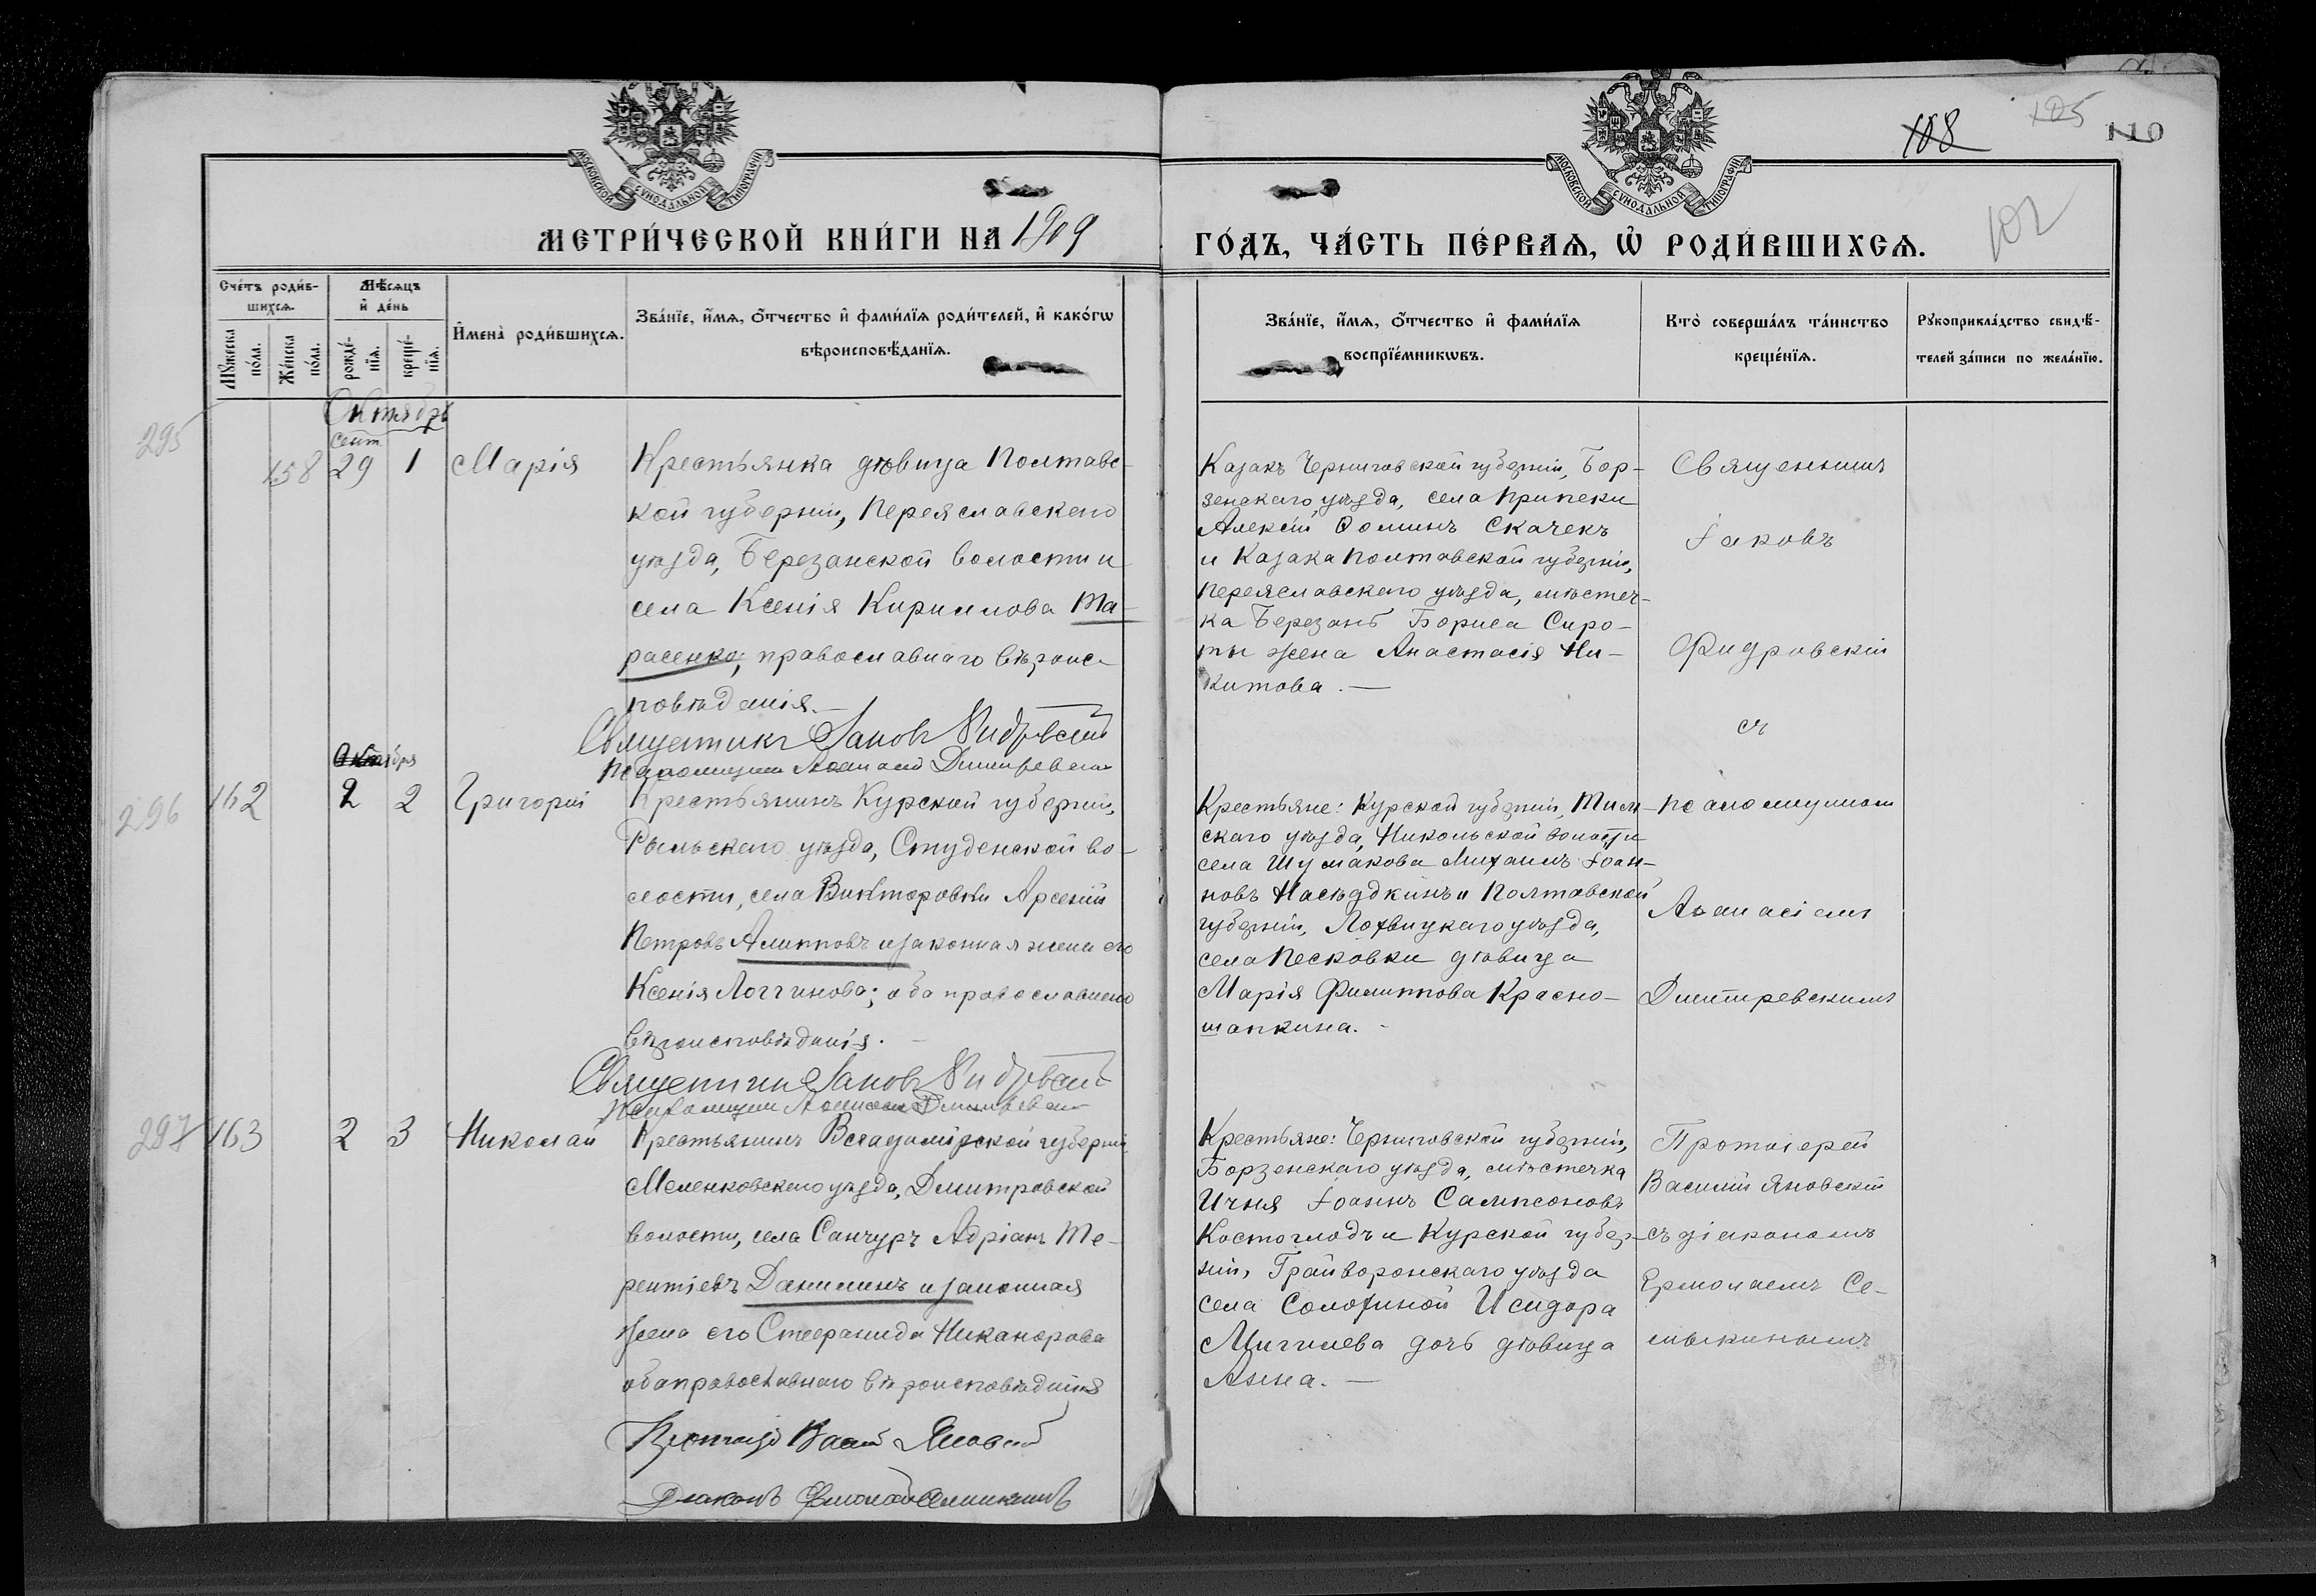 108
105
110
102
МОСКОВСКОЙ СѴНОДАЛЬНОЙ ТИПОГРАФІИ
МОСКОВСКОЙ СѴНОДАЛЬНОЙ ТИПОГРАФІИ
МЕТРИ́ЧЕСКОЙ КНИ́ГИ НА 1909
ГО́ДЪ, ЧА́СТЬ ПЕ́РВАѦ, Ѽ РОДИ́ВШИХСѦ.
Сче́тъ роди́в-
шихсѧ.
Мꙋжеска по́ла.
Же́нска по́ла.
Мѣ́сѧцъ
и҆ де́нь
рожде́-
нїѧ.
креще́-
нїѧ.
И҆мена̀ роди́вшихсѧ.
Зва́нїе, и҆́мѧ, ѻ҆́тчество и҆ фами́лїѧ роди́телей, и҆ како́гѡ
вѣроисповѣ́данїѧ.
Зва́нїе, и҆́мѧ, ѻ҆́тчество и҆ фами́лїѧ
воспрїе́мникѡвъ.
Кто̀ соверша́лъ та́инство
креще́нїѧ.
Рꙋкоприкла́дство свидѣ́-
телей за́писи по жела́нїю.
Октябрь
295
158
сент.
29
1
Марія
Крестьянка дѣвица Полтавс-
кой губерніи, Переяславскаго
уѣзда, Березанской волости и
села Ксенія Кириллова Та-
расенко, православнаго вѣроис-
повѣданія.—
Священникъ Іаковъ Фидровскій
Псаломщикъ Аѳанасій Димитревскій
Казакъ Черниговской губерніи, Бор-
зенскаго уѣзда, села Припеки
Алексій Ѳоминъ Скачекъ
и Казака Полтавской губерніи,
Переяславскаго уѣзда, мѣстеч-
ка Березань Бориса Сиро-
ты жена Анастасія Ни-
китова.—
Священникъ
Іаковъ
Фидровскій
съ
псаломщикомъ
Аѳанасіемъ
Димитревскимъ
296
162
Октября
2
2
Григорій
Крестьянинъ Курской губерніи,
Рыльскаго уѣзда, Студенской во-
лости, села Викторовки Арсеній
Петровъ Алиповъ и законная жена его
Ксенія Логгинова; оба православнаго
вѣроисповѣданія.—
Священникъ Іаковъ Фидровскій
Псаломщикъ Аѳанасій Димитревскій
Крестьяне: Курской губерніи, Тим-
скаго уѣзда, Никольской волости
села Шумакова Михаилъ Іоан-
новъ Насѣдкинъ и Полтавской
губерніи, Лохвицкаго уѣзда,
села Песковки дѣвица
Марія Филиппова Красно-
шапкина.-
297
163
2
3
Николай
Крестьянинъ Владимірской губерніи
Меленковскаго уѣзда, Дмитровской
волости, села Санчуръ Адріанъ Те-
рентіевъ Данилинъ и законная
жена его Стефанида Никанорова
оба православнаго вѣроисповѣданія
Протоіерей Василій Яновскій
Діаконъ Ермолай Семыкинъ
Крестьяне: Черниговской губерніи,
Борзенскаго уѣзда, мѣстечка
Ичня Іоаннъ Сампсоновъ
Костоглодъ и Курской губер-
ніи, Грайворонскаго уѣзда
села Солохиной Исидора
Мигилева дочь дѣвица
Анна.—
Протоіерей
Василій Яновскій
съ діакономъ
Ермолаемъ Се-
мыкинымъ